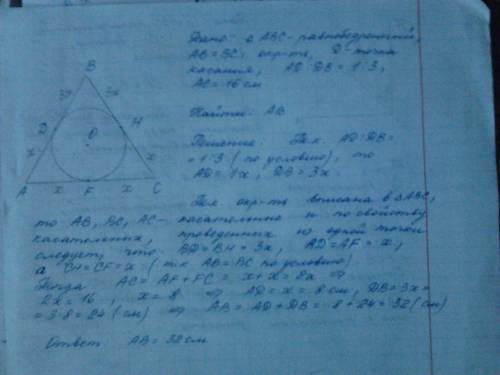 Дано: △ ABC - равнобедренный,
AB = BC; окр-ть, D - точка
касания, AD : DB = 1:3,
AC = 16 см
Найти: AB
Решение: Т.к. AD:DB =
= 1:3 (по условию), то
AD = 1x, DB = 3x.
Т.к. окр-ть вписана в △ABC,
то AB, BC, AC - касательные и по свойству
касательных, проведенных из одной точки
следует, что BD = BH = 3x, AD = AF = x,
а CH = CF = x (т.к AB = BC по условию)
Тогда AC = AF + FC = x + x = 2x ⇒
2x = 16, x = 8 ⇒ AD = x = 8 см, DB = 3x =
= 3·8 = 24 (см) ⇒ AB = AD + DB = 8 + 24 = 32 (см)
Ответ: AB = 32 см
B
3x 3x
D O H
x x
A x F x C